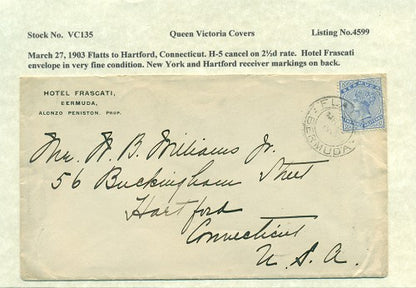 Stock No. VC135 Queen Victoria Covers Listing No.4599
March 27, 1903 Flatts to Hartford, Connecticut. H-5 cancel on 2½d rate. Hotel Frascati
envelope in very fine condition. New York and Hartford receiver markings on back.
HOTEL FRASCATI,
BERMUDA,
ALONZO PENISTON, PROP.
BERMUDA
Mr. W. B. Williams Jr.
56 Buckingham Street
Hartford
Connecticut
U. S. A.